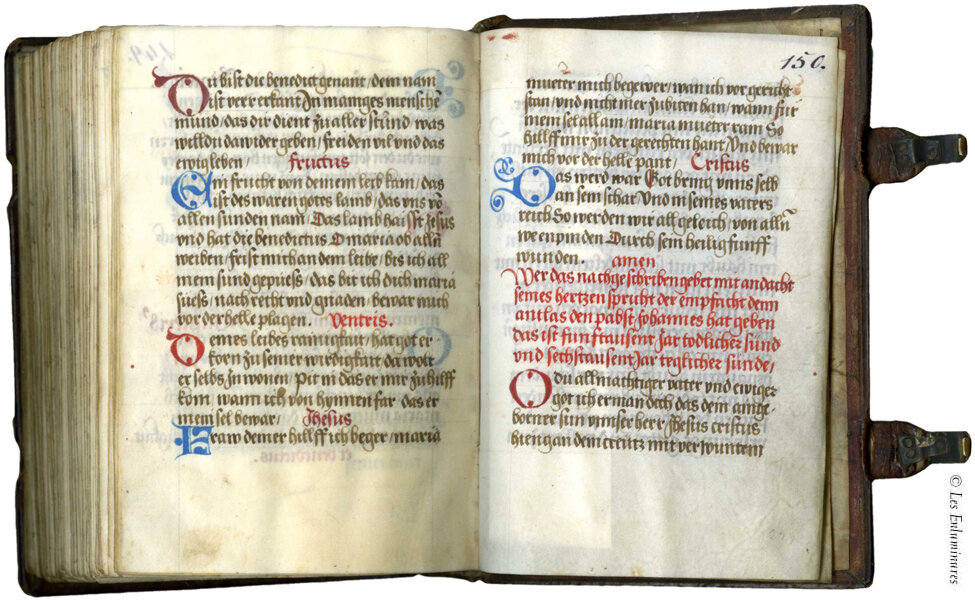 Du bist die benedict genant, dem nam
ist verr erkant In maniges mensche
mund, das dir dient zu aller stund, was
willdu da wider geben, freiden vil vnd das
ewig leben, fructus
Ain frucht von deinem leib kam, das
ist des waren gottes lamb, das vns vo
allen sunden nam, Das lamb haisst Jesus
vnd hat die benedictus O maria ob alln
weiben, frist mich an dem leibe, bis ich all
mein sund gepuess, das bit ich dich maria
suess, nach recht vnd gnaden, bewar mich
vor der helle plagen. ventris.
Deines leibes rainigkait, hat got er
koren zu seiner wirdigkait, da wolt
er selbs In wonen, Pit in das er mir zu hilff
kom, wann ich von hynnen far, das er
mein sel bewar, Jhesus
Fraw deiner hillff ich beger, maria
150.
mueter mich begewer, wan ich vor gericht
stan, vnd nicht mer zu biten han, wann für
mein sel allain, maria mueter rain So
hillff mir zu der gerechten hant, Vnd bewar
mich vor der helle pant, Cristus
Das werd war Got bring vnns selb
an sein schar, Vnd in seines vaters
reich So werden wir all geleich, von alln
we enpinden Durch sein heilig funff
wunden. amen
Wer das nachgeschriben gebet mit andacht
seines hertzen spricht der empfacht den
antlas den pabst Johannes hat geben
das ist funftausent Jar todlicher sund
vnd sechstausent Jar teglicher sunde,
O du allmachtiger vatter vnd ewiger
got ich erman dich das dein ainge
borner sun vnnser herr Jhesus cristus
hieng an dem creutz mit verwuntem
© Les Enluminures